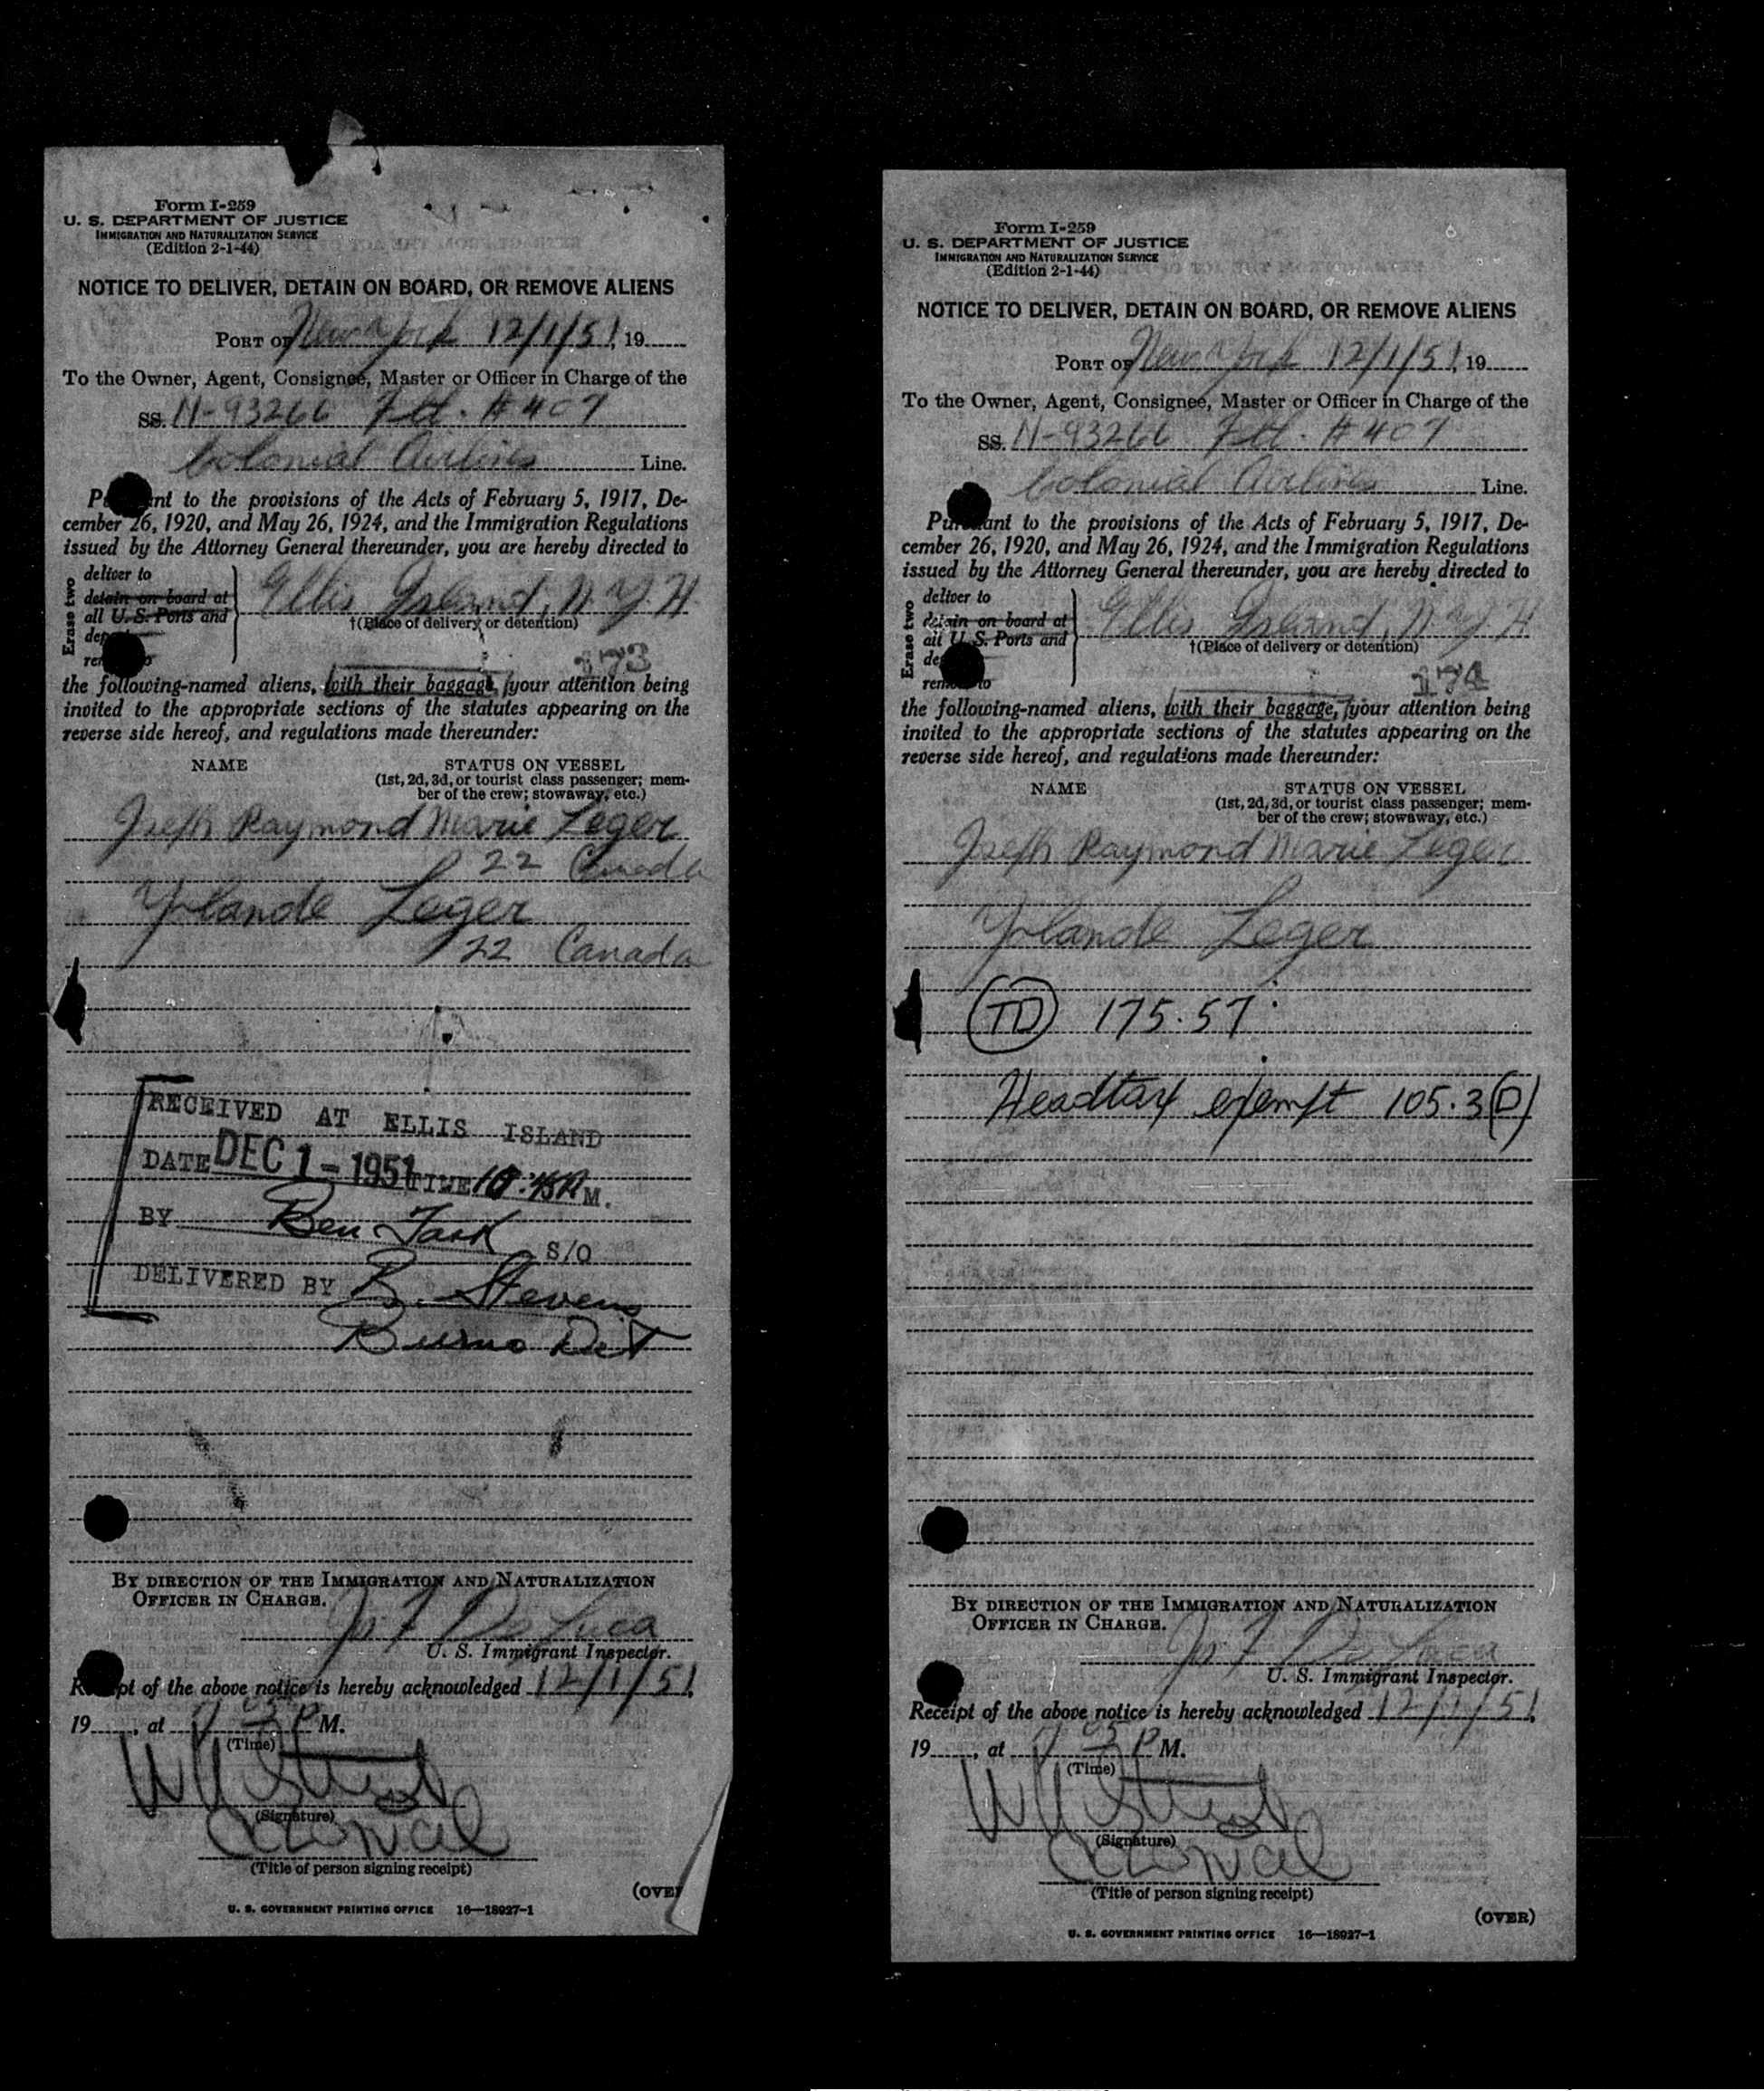 Form I-259
U. S. DEPARTMENT OF JUSTICE
IMMIGRATION AND NATURALIZATION SERVICE
(Edition 2-1-44)
NOTICE TO DELIVER, DETAIN ON BOARD, OR REMOVE ALIENS
PORT OF New York 12/1/51, 19
To the Owner, Agent, Consignee, Master or Officer in Charge of the
SS. N-93266 Flt. #407
Colonial Airlines Line.
nt to the provisions of the Acts of February 5, 1917, De-
cember 26, 1920, and May 26, 1924, and the Immigration Regulations
issued by the Attorney General thereunder, you are hereby directed to
Erase two
deliver to
detain on board at
all U. S. Ports and
Ellis Island, N.Y.H
†(Place of delivery or detention)
173
the following-named aliens, with their baggage, your attention being
invited to the appropriate sections of the statutes appearing on the
reverse side hereof, and regulations made thereunder:
NAME STATUS ON VESSEL
(1st, 2d, 3d, or tourist class passenger; mem-
ber of the crew; stowaway, etc.)
Joseph Raymond Marie Leger
22 Canada
Yolande Leger
22 Canada
RECEIVED AT ELLIS ISLAND
DATE DEC 1 - 1951 TIME M.
BY Ben Task S/O
DELIVERED BY B. Stevens
Burns Det
BY DIRECTION OF THE IMMIGRATION AND NATURALIZATION
OFFICER IN CHARGE.
Jo F De Luca
U. S. Immigrant Inspector.
pt of the above notice is hereby acknowledged 12/1/51,
19, at P M.
(Time)
(Signature)
Colonial
(Title of person signing receipt)
(OVE
U. S. GOVERNMENT PRINTING OFFICE 16—18927-1
Form I-259
U. S. DEPARTMENT OF JUSTICE
IMMIGRATION AND NATURALIZATION SERVICE
(Edition 2-1-44)
NOTICE TO DELIVER, DETAIN ON BOARD, OR REMOVE ALIENS
PORT OF New York 12/1/51, 19
To the Owner, Agent, Consignee, Master or Officer in Charge of the
SS. N-93266 Flt. #407
Colonial Airlines Line.
Pursuant to the provisions of the Acts of February 5, 1917, De-
cember 26, 1920, and May 26, 1924, and the Immigration Regulations
issued by the Attorney General thereunder, you are hereby directed to
Erase two
deliver to
detain on board at
all U. S. Ports and
remove to
Ellis Island, N.Y.H
†(Place of delivery or detention)
174
the following-named aliens, with their baggage, your attention being
invited to the appropriate sections of the statutes appearing on the
reverse side hereof, and regulations made thereunder:
NAME STATUS ON VESSEL
(1st, 2d, 3d, or tourist class passenger; mem-
ber of the crew; stowaway, etc.)
Joseph Raymond Marie Leger
Yolande Leger
TD 175.57
Headtax exempt 105.3(D)
BY DIRECTION OF THE IMMIGRATION AND NATURALIZATION
OFFICER IN CHARGE.
Jo F De Luca
U. S. Immigrant Inspector.
Receipt of the above notice is hereby acknowledged 12/1/51,
19, at P M.
(Time)
(Signature)
Colonial
(Title of person signing receipt)
(OVER)
U. S. GOVERNMENT PRINTING OFFICE 16—18927-1